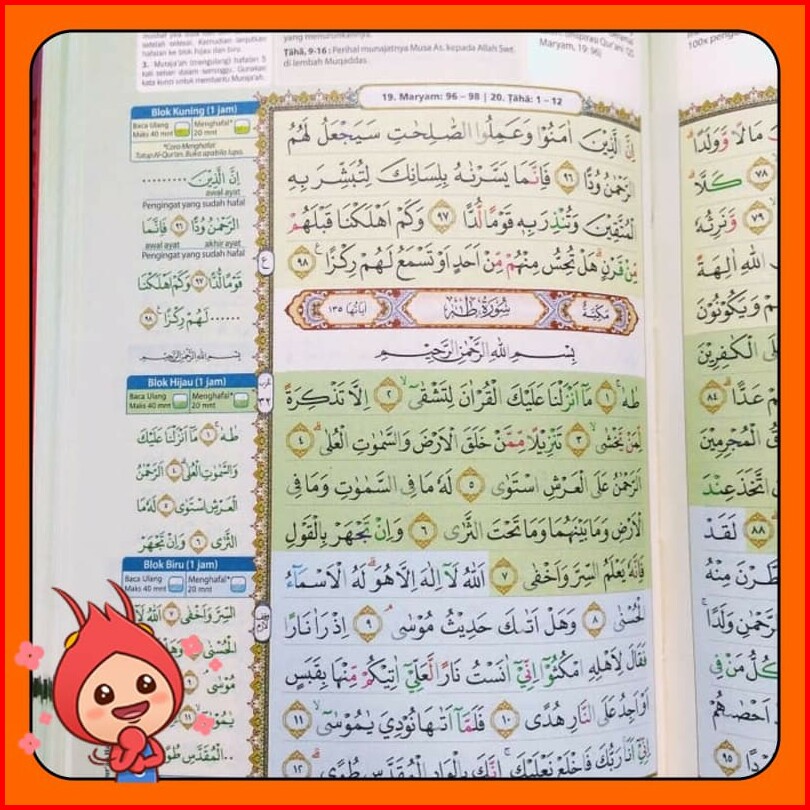 selesai. Kemudian lanjutkan
hafalan ke blok hijau dan biru.
3. Muraja'ah (mengulang) hafalan 5
kali sehari dalam seminggu. Gunakan
kata kunci untuk membantu Muraja'ah.
yang menurunkannya.
Ṭāhā, 9-16: Perihal munajatnya Musa As. kepada Allah Swt.
di lembah Muqaddas.
Maryam, 19: 96)
19. Maryam: 96 – 98 | 20. Ṭāhā: 1 – 12
اِنَّ الَّذِيْنَ اٰمَنُوْا وَعَمِلُوا الصّٰلِحٰتِ سَيَجْعَلُ لَهُمُ
الرَّحْمٰنُ وُدًّا ٩٦ فَاِنَّمَا يَسَّرْنٰهُ بِلِسَانِكَ لِتُبَشِّرَ بِهِ
الْمُتَّقِيْنَ وَتُنْذِرَ بِهٖ قَوْمًا لُّدًّا ٩٧ وَكَمْ اَهْلَكْنَا قَبْلَهُمْ
مِّنْ قَرْنٍۗ هَلْ تُحِسُّ مِنْهُمْ مِّنْ اَحَدٍ اَوْ تَسْمَعُ لَهُمْ رِكْزًا ٩٨
مَكِّيَّةٌ سُوْرَةُ طٰهٰ اٰيَاتُهَا ١٣٥
بِسْمِ اللّٰهِ الرَّحْمٰنِ الرَّحِيْمِ
طٰهٰ ۚ ١ مَآ اَنْزَلْنَا عَلَيْكَ الْقُرْاٰنَ لِتَشْقٰٓى ۙ ٢ اِلَّا تَذْكِرَةً
لِّمَنْ يَّخْشٰى ۙ ٣ تَنْزِيْلًا مِّمَّنْ خَلَقَ الْاَرْضَ وَالسَّمٰوٰتِ الْعُلٰى ۗ ٤
اَلرَّحْمٰنُ عَلَى الْعَرْشِ اسْتَوٰى ٥ لَهٗ مَا فِى السَّمٰوٰتِ وَمَا فِى
الْاَرْضِ وَمَا بَيْنَهُمَا وَمَا تَحْتَ الثَّرٰى ٦ وَاِنْ تَجْهَرْ بِالْقَوْلِ
فَاِنَّهٗ يَعْلَمُ السِّرَّ وَاَخْفٰى ٧ اَللّٰهُ لَآ اِلٰهَ اِلَّا هُوَۗ لَهُ الْاَسْمَاۤءُ
الْحُسْنٰى ٨ وَهَلْ اَتٰىكَ حَدِيْثُ مُوْسٰى ۘ ٩ اِذْ رَاٰ نَارًا
فَقَالَ لِاَهْلِهِ امْكُثُوْٓا اِنِّيْٓ اٰنَسْتُ نَارًا لَّعَلِّيْٓ اٰتِيْكُمْ مِّنْهَا بِقَبَسٍ
اَوْ اَجِدُ عَلَى النَّارِ هُدًى ١٠ فَلَمَّآ اَتٰىهَا نُوْدِيَ يٰمُوْسٰٓى ۙ ١١
اِنِّيْٓ اَنَا۠ رَبُّكَ فَاخْلَعْ نَعْلَيْكَۚ اِنَّكَ بِالْوَادِ الْمُقَدَّسِ طُوًى ۗ ١٢
Blok Kuning (1 jam)
Baca Ulang Menghafal*
Maks 40 mnt 20 mnt
*Cara Menghafal:
Tutup Al-Qur'an. Buka apabila lupa.
اِنَّ الَّذِيْنَ .........
awal ayat
Pengingat yang sudah hafal
الرَّحْمٰنُ وُدًّا ٩٦ فَاِنَّمَا
awal ayat akhir ayat
Pengingat yang sudah hafal
قَوْمًا لُّدًّا ٩٧ وَكَمْ اَهْلَكْنَا
...... لَهُمْ رِكْزًا ٩٨
بِسْمِ اللّٰهِ الرَّحْمٰنِ الرَّحِيْمِ
Blok Hijau (1 jam)
Baca Ulang Menghafal*
Maks 40 mnt 20 mnt
طٰهٰ ۚ ١ مَآ اَنْزَلْنَا عَلَيْكَ
وَالسَّمٰوٰتِ الْعُلٰى ٤ اَلرَّحْمٰنُ
الْعَرْشِ اسْتَوٰى ٥ لَهٗ مَا
الثَّرٰى ٦ وَاِنْ تَجْهَرْ
Blok Biru (1 jam)
Baca Ulang Menghafal*
Maks 40 mnt 20 mnt
السِّرَّ وَاَخْفٰى ٧ اَللّٰهُ لَآ
الْحُسْنٰى ٨ وَهَلْ
مُوْسٰى ٩
يٰمُوْسٰى ١١
..الْمُقَدَّسِ طُوًى
مَالًا وَّوَلَدًا
٧٨ كَلَّا
٧٩ وَّنَرِثُهٗ
اللّٰهِ اٰلِهَةً
وَيَكُوْنُوْنَ
الْكٰفِرِيْنَ
عَدًّا ٨٤
الْمُجْرِمِيْنَ
اتَّخَذَ عِنْدَ
٨٨ لَقَدْ
مِنْهُ
وَلَدًا
كُلُّ مَنْ فِى
اَحْصٰىهُمْ
٩٥